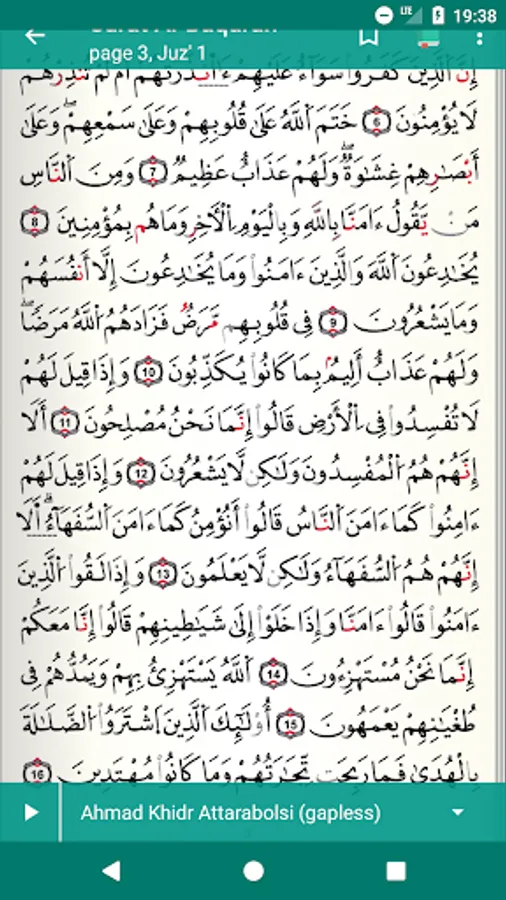 LTE 19:38
Surat Al-Baqarah
page 3, Juz' 1
إِنَّ ٱلَّذِينَ كَفَرُوا۟ سَوَآءٌ عَلَيْهِمْ ءَأَنذَرْتَهُمْ أَمْ لَمْ تُنذِرْهُمْ
لَا يُؤْمِنُونَ ٦ خَتَمَ ٱللَّهُ عَلَىٰ قُلُوبِهِمْ وَعَلَىٰ سَمْعِهِمْ ۖ وَعَلَىٰٓ
أَبْصَـٰرِهِمْ غِشَـٰوَةٌ ۖ وَلَهُمْ عَذَابٌ عَظِيمٌ ٧ وَمِنَ ٱلنَّاسِ
مَن يَقُولُ ءَامَنَّا بِٱللَّهِ وَبِٱلْيَوْمِ ٱلْـَٔاخِرِ وَمَا هُم بِمُؤْمِنِينَ ٨
يُخَـٰدِعُونَ ٱللَّهَ وَٱلَّذِينَ ءَامَنُوا۟ وَمَا يَخْدَعُونَ إِلَّآ أَنفُسَهُمْ
وَمَا يَشْعُرُونَ ٩ فِى قُلُوبِهِم مَّرَضٌ فَزَادَهُمُ ٱللَّهُ مَرَضًا ۖ
وَلَهُمْ عَذَابٌ أَلِيمٌۢ بِمَا كَانُوا۟ يَكْذِبُونَ ١٠ وَإِذَا قِيلَ لَهُمْ
لَا تُفْسِدُوا۟ فِى ٱلْأَرْضِ قَالُوٓا۟ إِنَّمَا نَحْنُ مُصْلِحُونَ ١١ أَلَآ
إِنَّهُمْ هُمُ ٱلْمُفْسِدُونَ وَلَـٰكِن لَّا يَشْعُرُونَ ١٢ وَإِذَا قِيلَ لَهُمْ
ءَامِنُوا۟ كَمَآ ءَامَنَ ٱلنَّاسُ قَالُوٓا۟ أَنُؤْمِنُ كَمَآ ءَامَنَ ٱلسُّفَهَآءُ ۗ أَلَآ
إِنَّهُمْ هُمُ ٱلسُّفَهَآءُ وَلَـٰكِن لَّا يَعْلَمُونَ ١٣ وَإِذَا لَقُوا۟ ٱلَّذِينَ
ءَامَنُوا۟ قَالُوٓا۟ ءَامَنَّا وَإِذَا خَلَوْا۟ إِلَىٰ شَيَـٰطِينِهِمْ قَالُوٓا۟ إِنَّا مَعَكُمْ
إِنَّمَا نَحْنُ مُسْتَهْزِءُونَ ١٤ ٱللَّهُ يَسْتَهْزِئُ بِهِمْ وَيَمُدُّهُمْ فِى
طُغْيَـٰنِهِمْ يَعْمَهُونَ ١٥ أُو۟لَـٰٓئِكَ ٱلَّذِينَ ٱشْتَرَوُا۟ ٱلضَّلَـٰلَةَ
بِٱلْهُدَىٰ فَمَا رَبِحَت تِّجَـٰرَتُهُمْ وَمَا كَانُوا۟ مُهْتَدِينَ ١٦
Ahmad Khidr Attarabolsi (gapless)